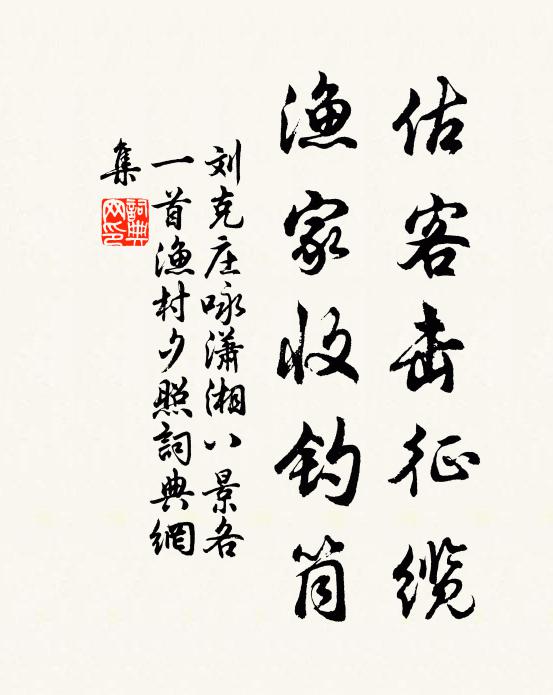 估客击征缆
渔家收钓筒
刘克庄咏潇湘八景各
一首渔村夕照詞典網
集
詞典網印